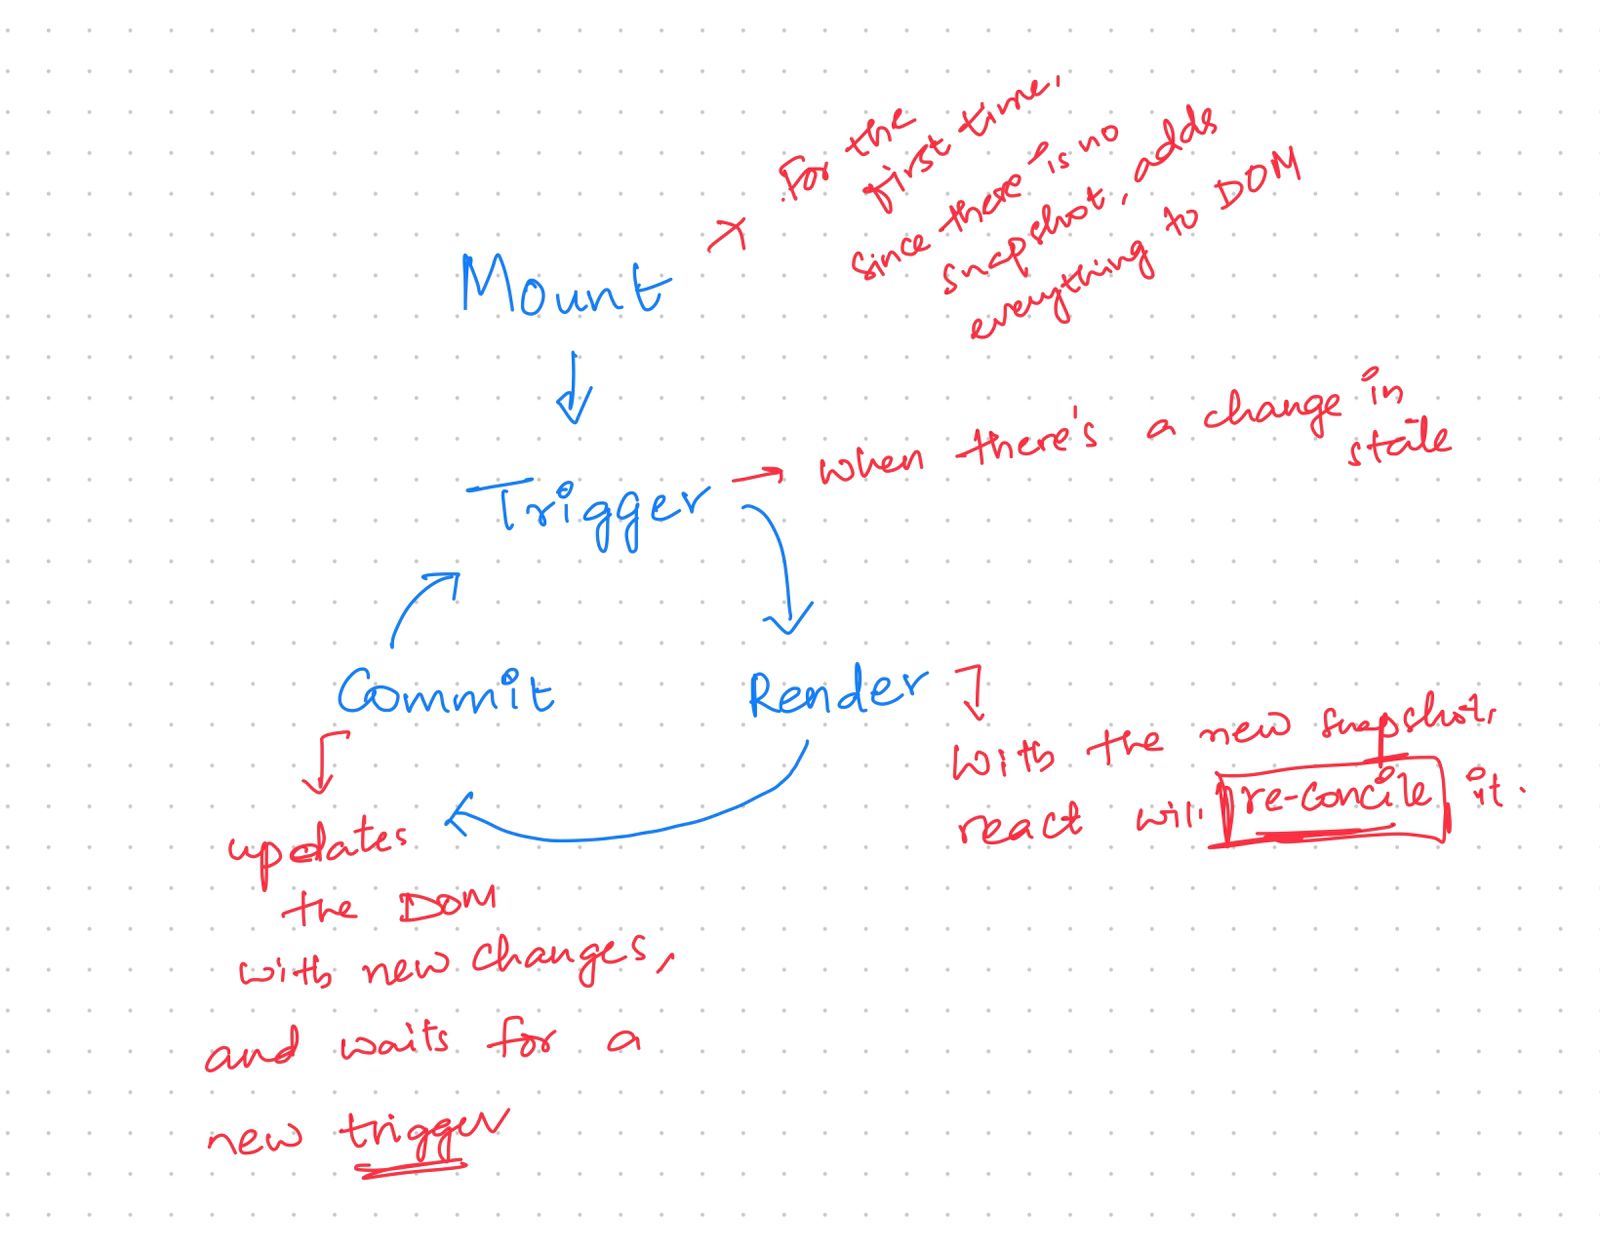 For the
first time,
since there is no
snapshot, adds
everything to DOM
Mount
Trigger
when there's a change in
state
Commit
Render
with the new snapshot,
react will re-concile it.
updates
the DOM
with new changes,
and waits for a
new trigger